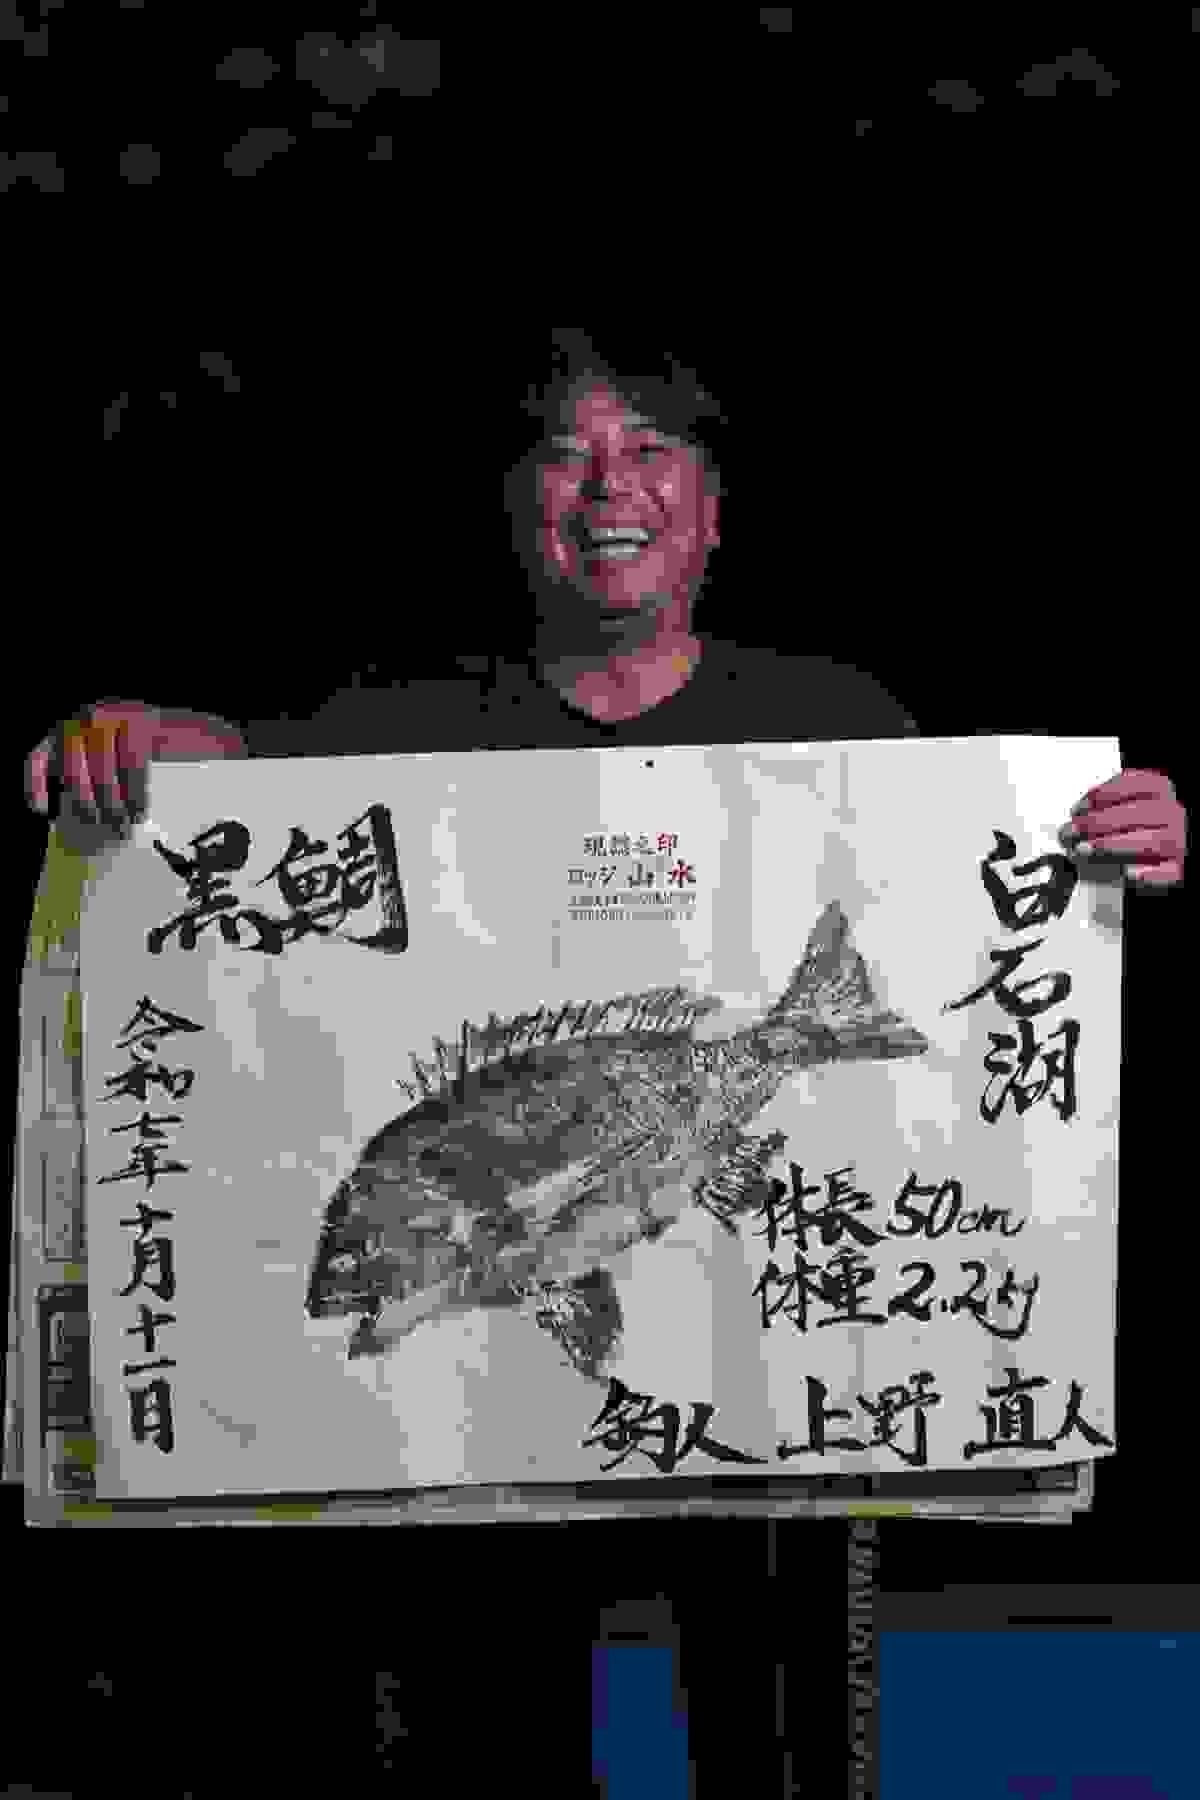 黒鯛
現認之印
ロッジ 山水
白石湖
令和七年十月十一日
体長50cm
体重2.2kg
釣人 上野 直人